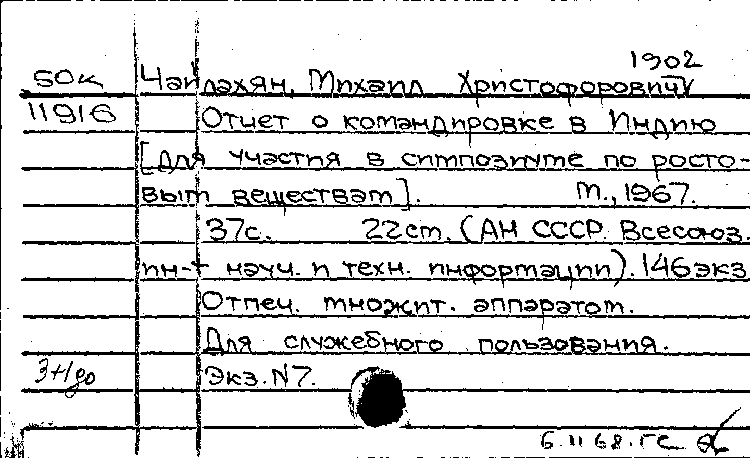 1902
БОК Чайлахян, Михаил Христофорович
11916 Отчет о командировке в Индию
[для участия в симпозиуме по росто-
вым веществам]. М., 1967.
37с. 22см. (АН СССР. Всесоюз.
ин-т науч. и техн. информации). 146экз
Отпеч. множит. аппаратом.
Для служебного пользования.
Экз. N7.
6.11 68. ГС